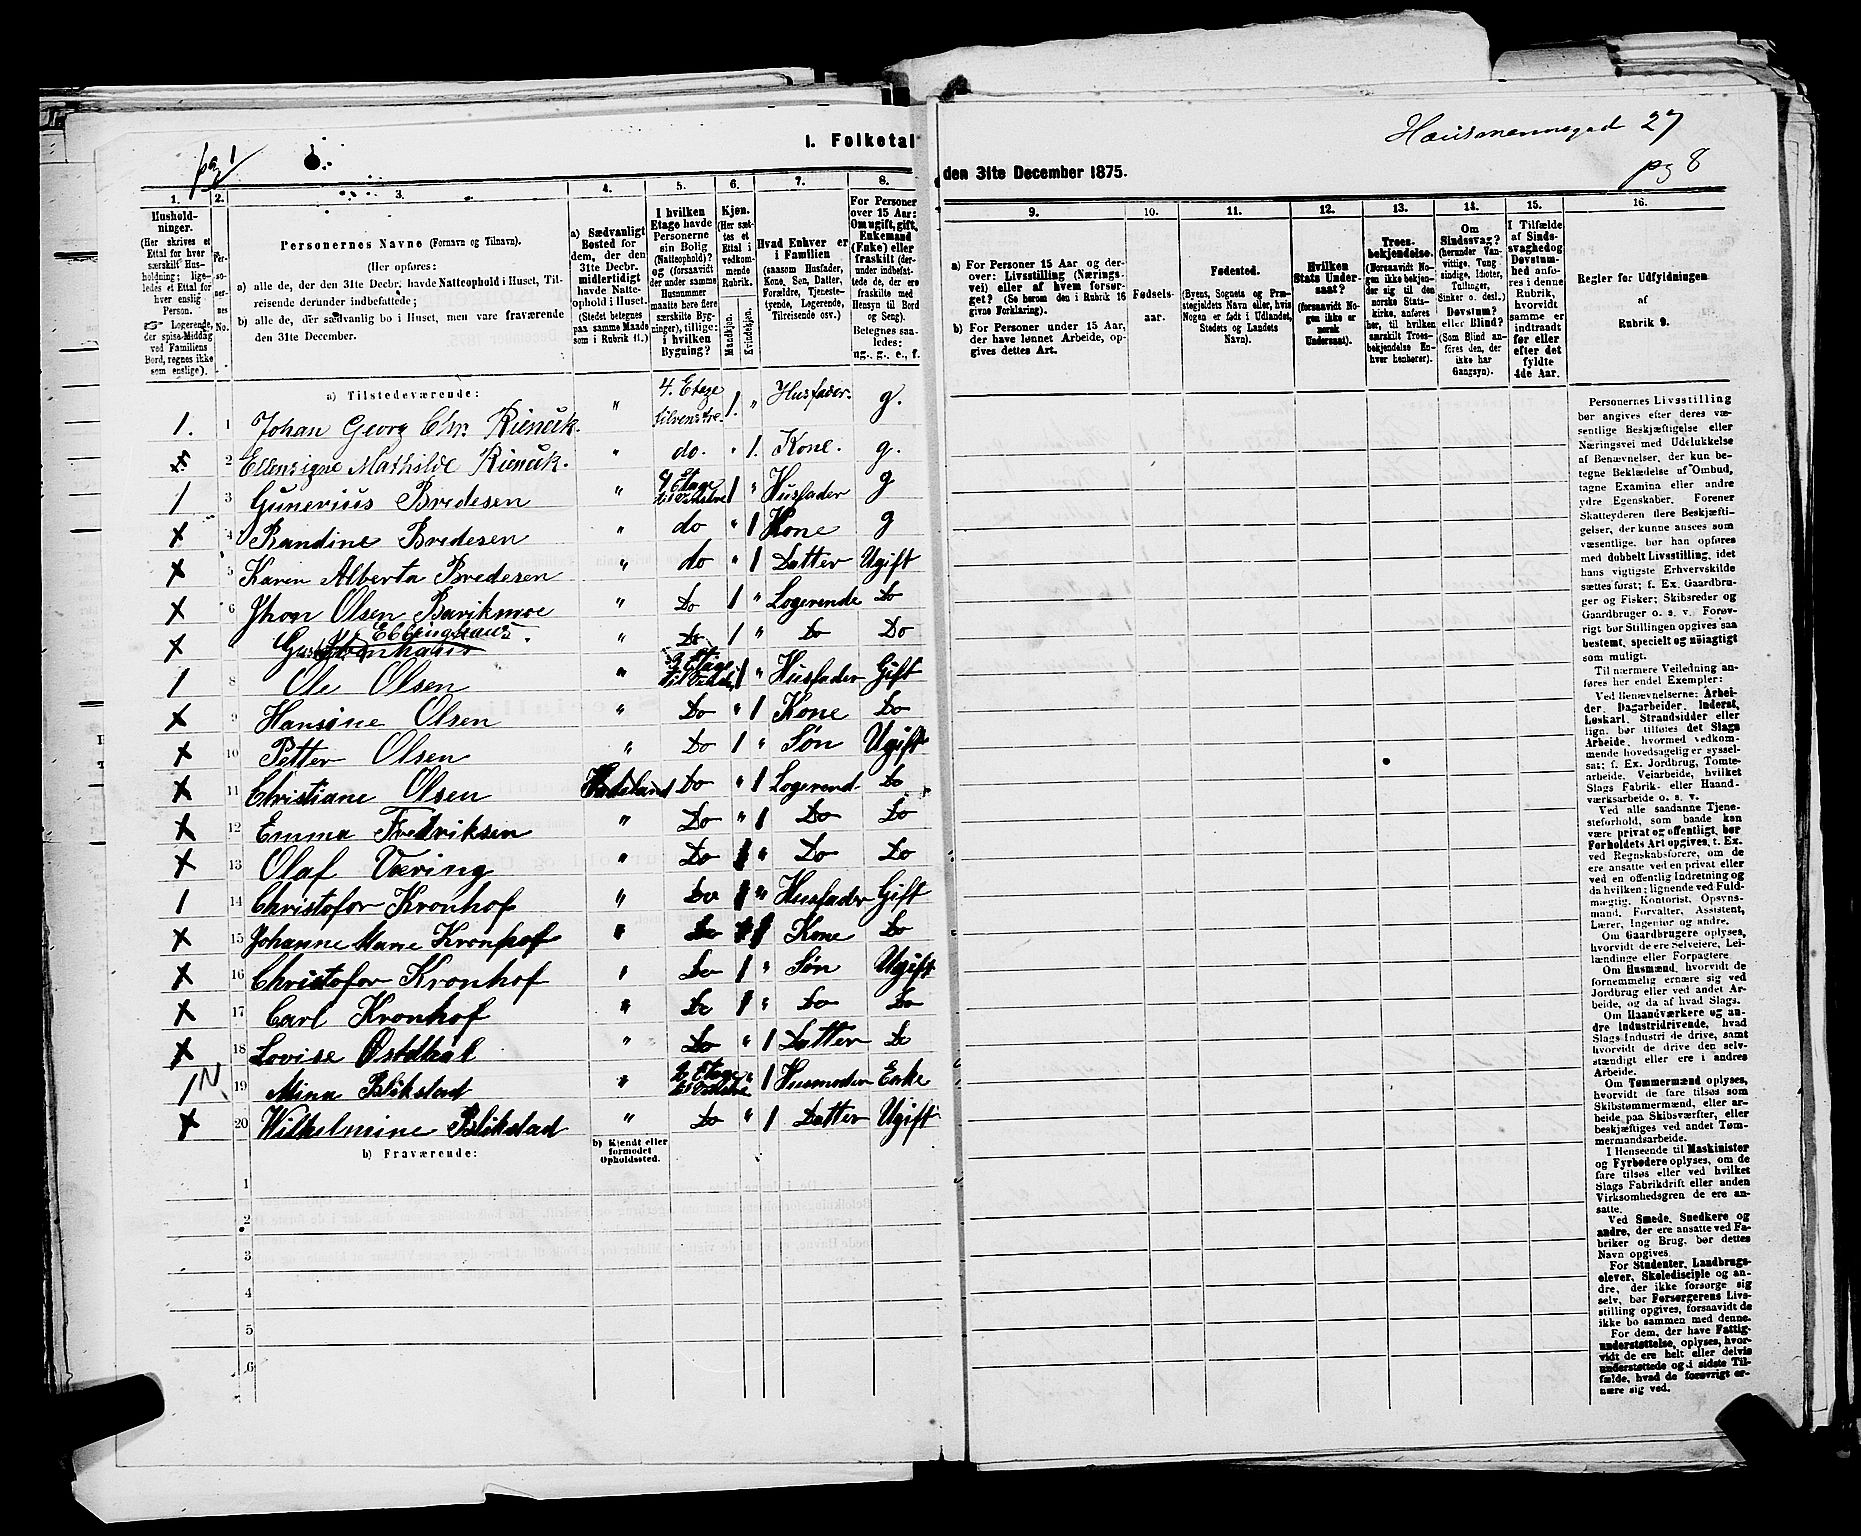 I. Folketal
den 31te December 1875.
Hausmannsgad 27
pg 8
1.
Husholdninger.
(Her skrives et
Ettal for hver
særskilt Husholdning;
ligeledes et Ettal for
hver enslig
Person.
Logerende,
der spise Middag
ved Familiens
Bord, regnes ikke
som enslige).
2.
Personernes No.
3.
Personernes Navne (Fornavn og Tilnavn).
(Her opføres:
a) alle de, der den 31te Decbr. havde Natteophold i Huset, Tilreisende derunder indbefattede;
b) alle de, der sædvanlig bo i Huset, men vare fraværende den 31te December.
4.
a) Sædvanligt
Bosted for
dem, der den
31te Decbr.
midlertidigt
havde Natteophold i Huset.
(Stedet betegnes
paa samme Maade
som i Rubrik 11.)
5.
I hvilken
Etage havde
Personerne
sin Bolig
(Natteophold)?
og (forsaavidt
der under samme
Husnummer
maatte høre flere
særskilte Bygninger), tillige:
i hvilken
Bygning?
6.
Kjøn.
(Her sættes et
Ettal i
vedkommende
Rubrik.
Mandkjøn.
Kvindekjøn.
7.
Hvad Enhver er
i Familien
(saasom Husfader,
Kone, Søn, Datter,
Forældre, Tjenestetyende, Logerende,
Tilreisende osv.
8.
For Personer
over 15 Aar:
Om ugift, gift,
Enkemand
(Enke) eller
fraskilt (derunder indbefattede de, der
ere fraskilte med
Hensyn til Bord
og Seng).
Betegnes saaledes:
ug., g., e., f.
9.
a) For Personer 15 Aar og derover: Livsstilling (Næringsvei) eller af hvem forsørget? (Se herom den i Rubrik 16 givne Forklaring).
b) For Personer under 15 Aar, der have lønnet Arbeide, opgives dettes Art.
10.
Fødselsaar.
11.
Fødested.
(Byens, Sognets og Præstegjeldets Navn eller, hvis
Nogen er født i Udlandet,
Stedets og Landets
Navn).
12.
Hvilken
Stats Undersaat?
(forsaavidt Nogen ikke er
norsk
Undersaat).
13.
Troesbekjendelse.
(Forsaavidt Nogen ikke bekjender sig til den
norske Statskirke, anføres
her, til hvilken
særskilt Troesbekjendelse Enhver henhører).
14.
Om
Sindssvag?
(herunder Vanvittige, Tungsindige, Idioter,
Tullinger,
Sinker o. desl.)
Døvstum?
eller Blind?
(Som Blind anføres den, der
ikke har
Gangsyn).
15.
I Tilfælde
af Sindssvaghed og
Døvstumhed anføres i denne
Rubrik,
hvorvidt
samme er
indtraadt
før eller
efter det
fyldte
4de Aar.
16.
Regler for Udfyldningen
af
Rubrik 9.
a) Tilstedeværende:
1. 1 Johan Georg Chr. Rieneck " 4. Etage tilvenstre 1. " Husfader. g.
2 Ellensigne Mathilde Rieneck. " do. " 1. Kone. g.
1 3 Gunerius Bredesen " 4 Etage til Venstre 1 " Husfader g
x 4 Randine Bredesen " do " 1 Kone g
x 5 Karen Alberta Bredesen " do " 1 Datter Ugift
x 6 Jhon Olsen Barikmoe " Do 1 " Logerende Do
x Ebbinghaus " Do 1 " Do Do
1 8 Ole Olsen " Etage 1 " Husfader Gift
x 9 Hansine Olsen " Do " 1 Kone Do
x 10 Petter Olsen " Do 1 " Søn Ugift
x 11 Christiane Olsen Hadeland Do " 1 Logerend Do
x 12 Emma Fredriksen " Do " 1 Do Do
x 13 Olaf Væring " Do 1 " Do Do
1 14 Christofor Kronhof " Do 1 " Husfader Gift
x 15 Johanne Marie Kronhof " Do " 1 Kone Do
x 16 Christofor Kronhof " Do 1 " Søn Ugift
x 17 Carl Kronhof " Do 1 " Do Do
x 18 Lovise Østdhal " Do " 1 Datter Do
1 N 19 Mina Blikstad " Etage til Venstre " 1 Husmoder Enke
x 20 Wilhelmine Blikstad " Do " 1 Datter Ugift
b) Fraværende:
b) Kjendt eller
formodet
Opholdssted.
1
2
3
4
5
6
Personernes Livsstilling
bør angives efter deres væsentlige Beskjæftigelse eller
Næringsvei med Udelukkelse
af Benævnelser, der kun betegne Beklædelse af Ombud,
tagne Examina eller andre
ydre Egenskaber. Forener
Skatteyderen flere Beskjæftigelser, der kunne ansees som
væsentlige, bør han opføres
med dobbelt Livsstilling, idet
hans vigtigste Erhvervskilde
sættes først; f. Ex. Gaardbruger og Fisker; Skibsreder og
Gaardbruger o. s. v. Forøvrigt bør Stillingen opgives saa
bestemt, specielt og nøiagtigt
som muligt.
Til nærmere Veiledning anføres her endel Exempler:
Ved Benævnelserne: Arbeider, Dagarbeider, Inderst,
Løskarl, Strandsidder eller
lign. bør tilføies det Slags
Arbeide, hvormed vedkommende hovedsagelig er sysselsat; f. Ex. Jordbrug, Tomtearbeide, Veiarbeide, hvilket
Slags Fabrik- eller Haandværksarbeide o. s. v.
Ved alle saadanne Tjenesteforhold, som baade kan
være privat og offentligt, bør
Forholdets Art opgives, t. Ex.
ved Regnskabsførere, om de
ere ansatte ved en privat eller
ved en offentlig Indretning og
da hvilken; lignende ved Fuldmægtig, Kontorist, Opsynsmand, Forvalter, Assistent,
Lærer, Ingeniør og andre.
Om Gaardbrugere oplyses,
hvorvidt de ere Selveiere, Leilændinge eller Forpagtere.
Om Husmænd, hvorvidt de
fornemmelig ernære sig ved
Jordbrug eller ved andet Arbeide, og da af hvad Slags.
Om Haandværkere og andre Industridrivende, hvad
Slags Industri de drive, samt
hvorvidt de drive den selvstændigt eller ere i andres
Arbeide.
Om Tømmermænd oplyses,
hvorvidt de fare tilsøs som
Skibstømmermænd, eller arbeide paa Skibsværfter, eller
beskjæftiges ved andet Tømmermandsarbeide.
I Henseende til Maskinister
og Fyrbødere oplyses, om de
fare tilsøs eller ved hvilket
Slags Fabrikdrift eller anden
Virksomhedsgren de ere ansatte.
Ved Smede, Snedkere og
andre, der ere ansatte ved Fabriker og Brug, bør dettes
Navn opgives.
For Studenter, Landbrugselever, Skoledisciple og andre, der ikke forsørge sig
selv, bør Forsørgerens Livsstilling opgives, forsaavidt de
ikke bo sammen med denne.
For dem, der have Fattigunderstøttelse, oplyses, hvorvidt de ere helt eller delvis
understøttede og i sidste Tilfælde, hvad de forøvrigt ernære sig ved.